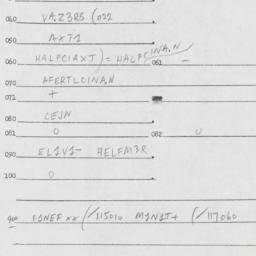 040 VAZ3RS (022
050 AXT1
060 HALPCIAXT) = HALPCINA.N 061 -
070 AFERTLCINAN
071 +
080 CEJN
081 0 082 0
090 EL1V1- HELFM3R
100 0
900 F1NEFxx (/115010 M1N1T+ (/117060